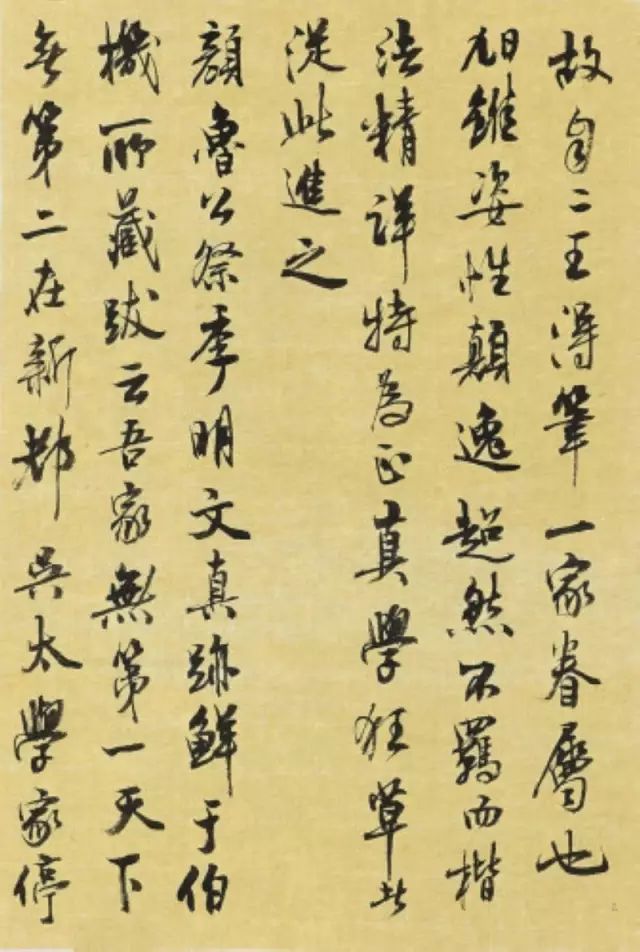 故自二王得筆一家眷屬也
旭雖姿性顛逸超然不羈而楷
法精詳特為正真學狂草者
從此進之
顏魯公祭季明文真跡鮮于伯
機所藏跋云吾家無第一天下
無第二在新都吳太學家停